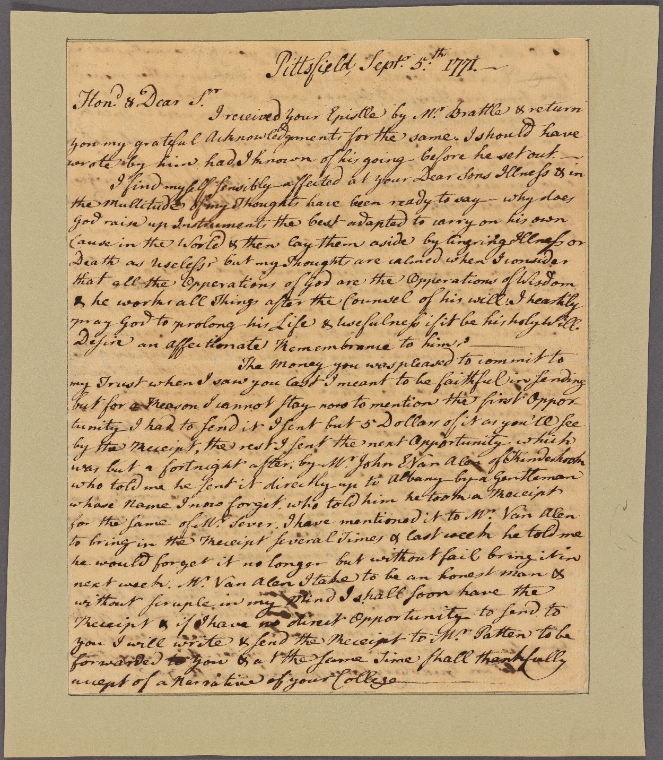 Pittsfield Sept. 5.th 1771.
Hond. & Dear Sr.
I received your Epistle by Mr. Brattle & return
you my grateful Acknowledgments for the same. I should have
wrote by him had I known of his going before he set out.
I find myself sensibly affected at your Dear Sons Illness & in
the Multitude of my Thoughts have been ready to say - why does
God raise up Instruments the best adapted to carry on his own
Cause in the World & then lay them aside by lingring Illness or
Death as Useless? but my Thought are calmed when I consider
that all the Opperations of God are the Opperations of Wisdom
& he works all Things after the Counsel of his will. I heartily
pray God to prolong his Life & Usefulness if it be his holy Will.
Desire an affectionate Remembrance to him.
The Money you was pleased to commit to
my Trust when I saw you last I meant to be faithful in sending
but for a Reason I cannot stay now to mention the first Oppor
tunity I had to send it I sent but 5 Dollars of it as you'll see
by the Receipt, the rest I sent the next Opportunity, which
was but a fortnight after, by Mr. John E Van Alen of Kinderhook
who told me he sent it directly up to Albany by a Gentleman
whose Name I now forget, who told him he took a Receipt
for the same of Mr. Sever. I have mentioned it to Mr. Van Alen
to bring in the Receipt several Times & last week he told me
he would forget it no longer but without fail bring it in
next week. Mr. Van Alen I take to be an honest man &
without scruple in my Mind I shall soon have the
Receipt & if I have no direct Opportunity to send to
you I will write & send the Receipt to Mr. Patten to be
forwarded to you & at the same Time shall thankfully
accept of a Narrative of your College